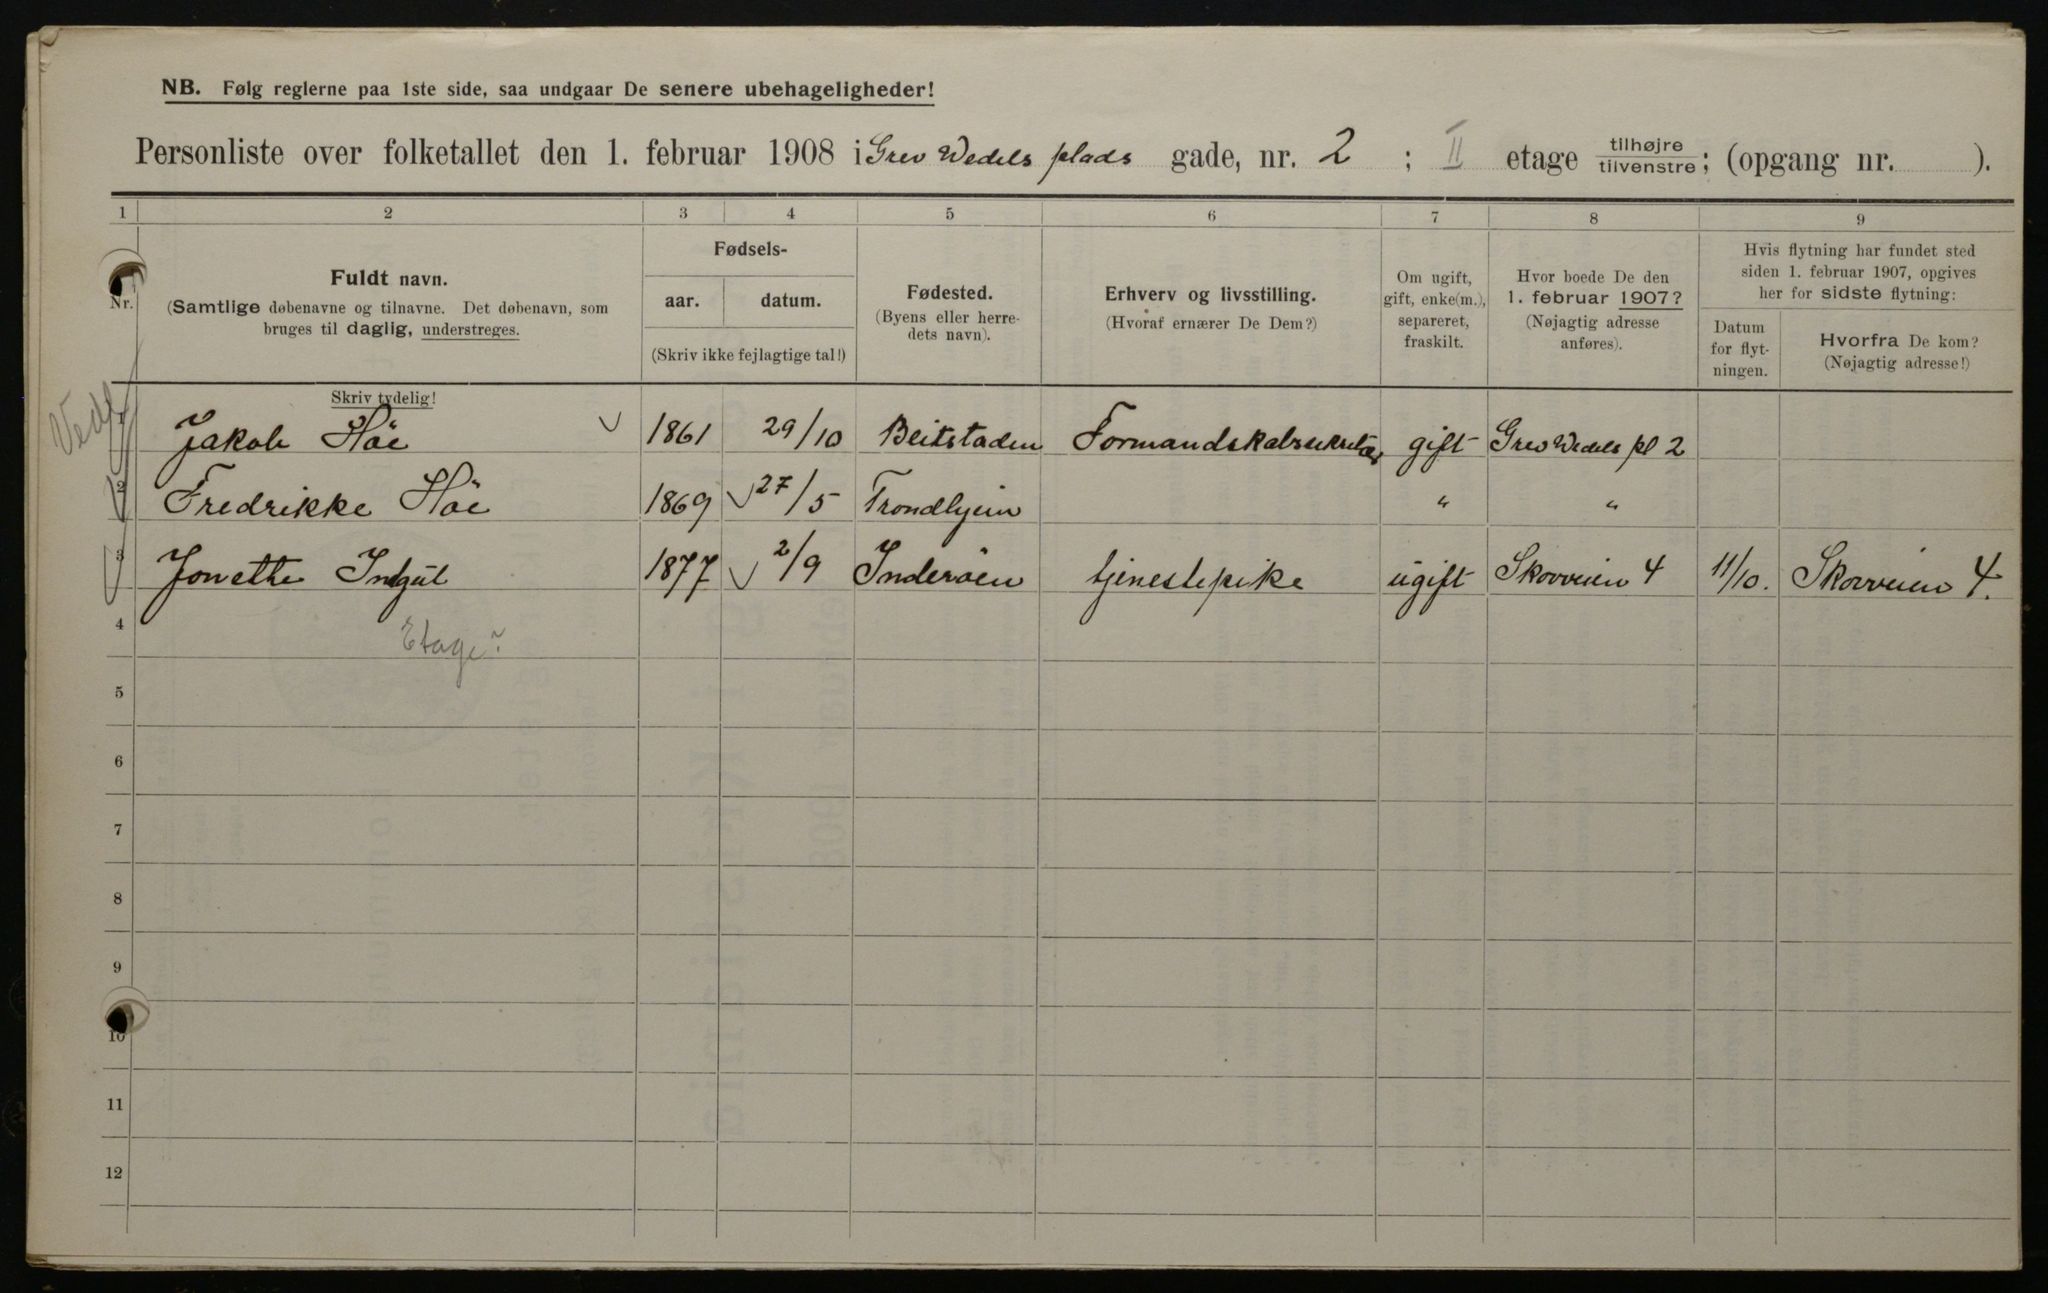 NB. Følg reglerne paa 1ste side, saa undgaar De senere ubehageligheder!
Personliste over folketallet den 1. februar 1908 i Grev Wedels plads gade, nr. 2 ; II etage tilhøjre/tilvenstre; (opgang nr. ).
1 2 3 4 5 6 7 8 9
Nr.
Fuldt navn.
(Samtlige døbenavne og tilnavne. Det døbenavn, som
bruges til daglig, understreges.
Skriv tydelig!
Fødsels-
aar. datum.
(Skriv ikke fejlagtige tal!)
Fødested.
(Byens eller herre-
dets navn).
Erhverv og livsstilling.
(Hvoraf ernærer De Dem?)
Om ugift,
gift, enke(m.),
separeret,
fraskilt.
Hvor boede De den
1. februar 1907?
(Nøjagtig adresse
anføres).
Hvis flytning har fundet sted
siden 1. februar 1907, opgives
her for sidste flytning:
Datum
for flyt-
ningen.
Hvorfra De kom?
(Nøjagtig adresse!)
1 Jakob Höe 1861 29/10 Beitstaden Formandskabssekretær gift Grev Wedels pl 2
2 Fredrikke Höe 1869 27/5 Trondhjem " "
3 Jonette 1877 2/9 Inderöen tjenestepike ugift Skovveien 4 11/10. Skovveien 4.
4
Etage?
5
6
7
8
9
10
11
12